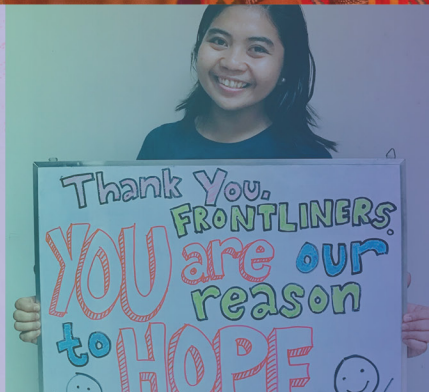 Thank You,
FRONTLINERS.
YOU are our
reason
to HOPE